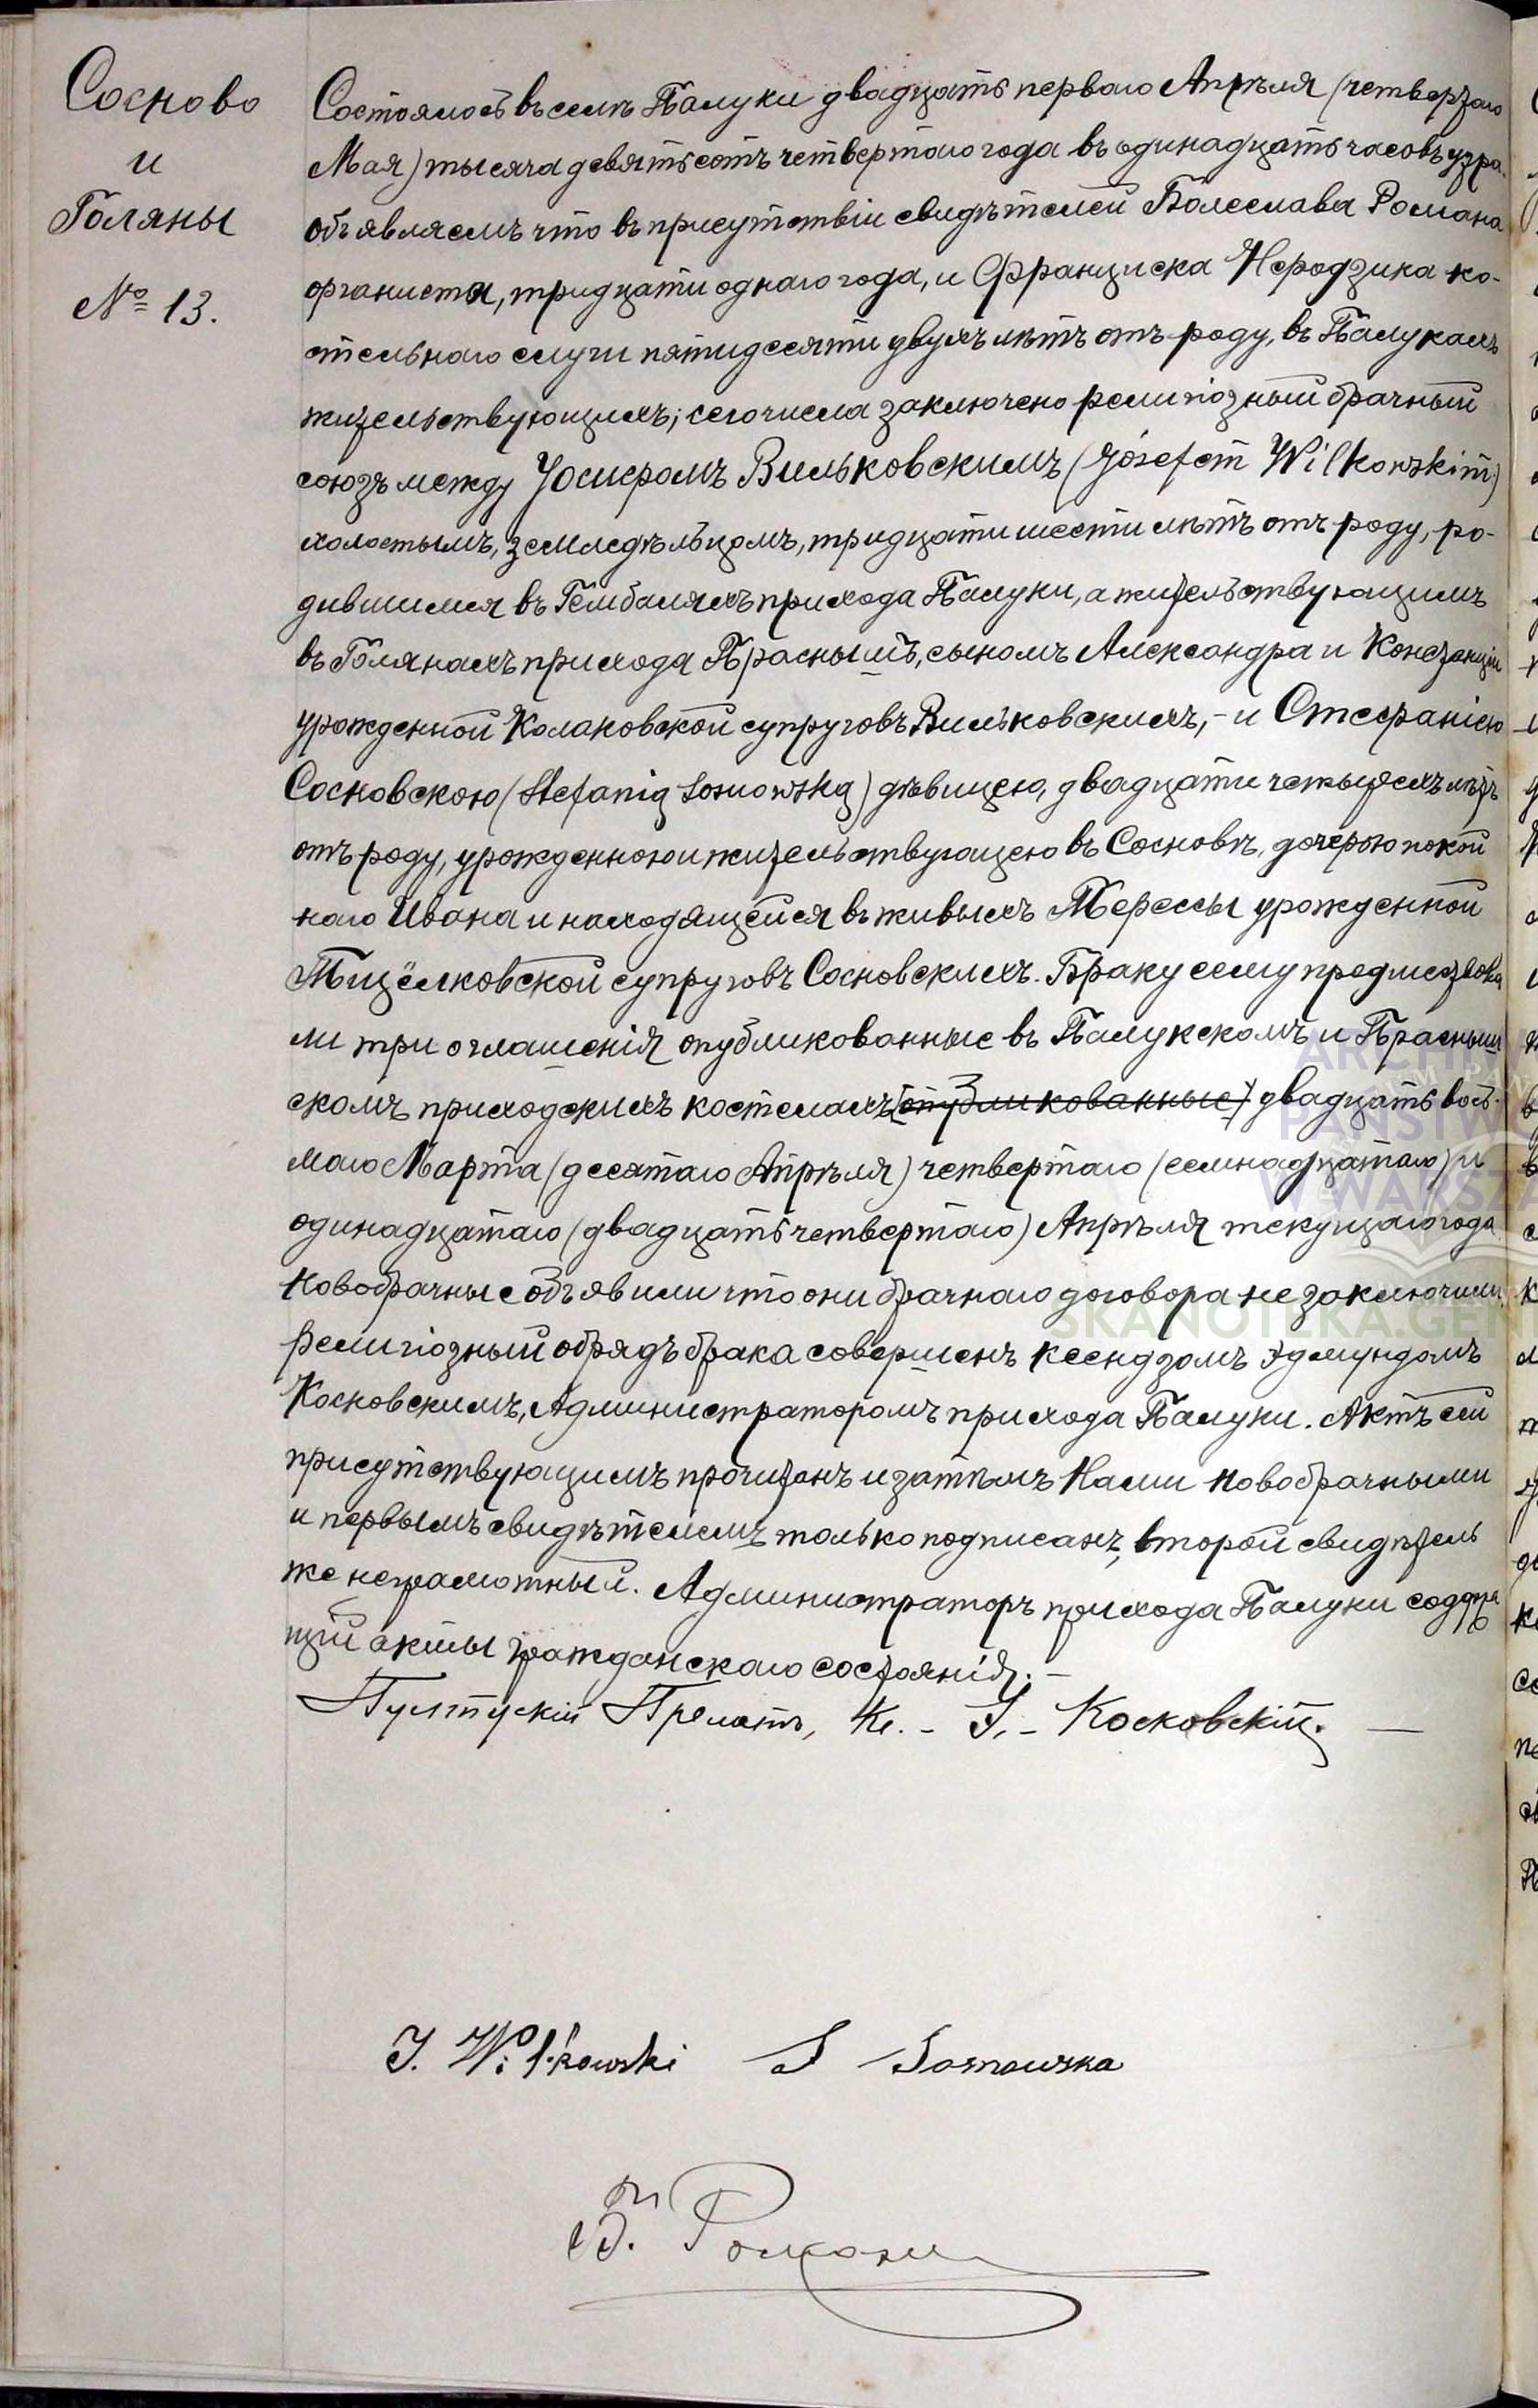 Сосново
и
Голяны
№ 13.
Состоялось въ селѣ Палуки двадцать перваго Апрѣля (четвертаго
Мая) тысяча девятьсотъ четвертаго года въ одинадцать часовъ утра.
объявляемъ что въ присутствіи свидѣтелей Болеслава Романа
органиста, тридцати однаго года, и Франциска Неродзика ко-
стельнаго слуги пятидесяти двухъ лѣтъ отъ роду, въ Палукахъ
жительствующихъ; сего числа заключено религіозный брачный
союзъ между Іосифомъ Вильковскимъ (Józefem Wilkowskim)
холостымъ, земледѣльцомъ, тридцати шести лѣтъ отъ роду, ро-
дившимся въ Гембаляхъ прихода Палуки, а жительствующимъ
въ Голянахъ прихода Праснышъ, сыномъ Александра и Констанціи
урожденной Колаковской супруговъ Вильковскихъ, - и Стефаніею
Сосновскою (Stefanią Sosnowską) дѣвицею, двадцати четырехъ лѣтъ
отъ роду, урожденною и жительствующею въ Сосновѣ, дочерью покой
наго Ивана и находящейся въ живыхъ Терессы урожденной
Тщёлковской супруговъ Сосновскихъ. Браку сему предшествова
ли три оглашенія опубликованные въ Палукскомъ и Прасныш
скомъ приходскихъ костелахъ (опубликованные) двадцать вось-
маго Марта (десятаго Апрѣля) четвертаго (семнадцатаго) и
одинадцатаго (двадцать четвертаго) Апрѣля текущаго года
Новобрачные объявили что они брачнаго договора не заключили.
Религіозный обрядъ брака совершенъ ксендзомъ Эдмундомъ
Косковскимъ, Администраторомъ прихода Палуки. Актъ сей
присутствующимъ прочитанъ и затѣмъ Нами новобрачными
и первымъ свидѣтелемъ только подписанъ, второй свидѣтель
же неграмотный. Администраторъ прихода Палуки содержа
щій акты гражданскаго состоянія. -
Пултускій Прелатъ, Кс. - Э. - Косковскій. —
J. Wilkowski S Sosnowska
Б. Романъ
ARCHIWUM
PAŃSTWO
W WARSZA
SKANOTEKA.GEN